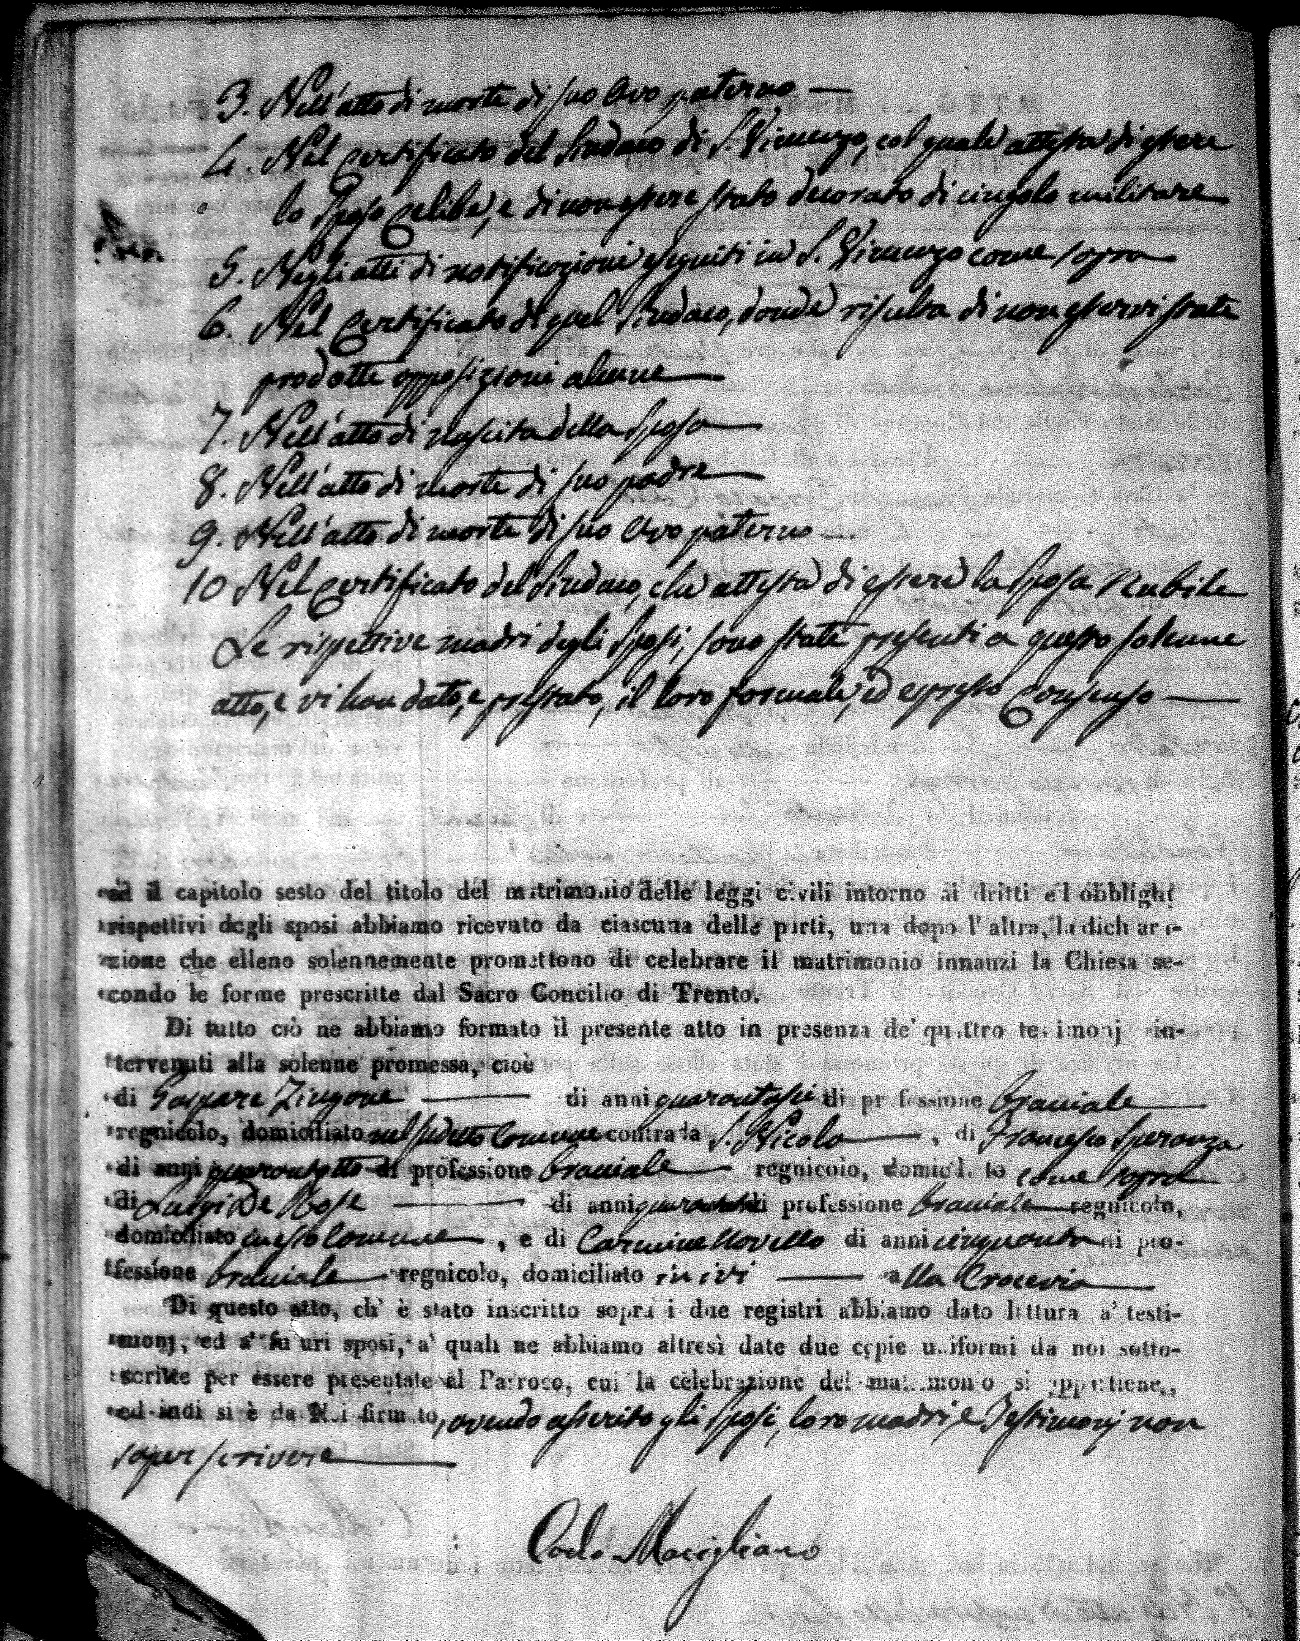 3. Nell'atto di morte di suo Avo paterno —
4. Nel Certificato del Sindaco di S. Vincenzo, col quale attesta di essere
lo Sposo celibe, e di non essere stato decorato di cingolo militare
5. Negli atti di notificazione eseguiti in S. Vincenzo come sopra
6. Nel Certificato di quel Sindaco, donde risulta di non esservi state
prodotte opposizioni alcune —
7. Nell'atto di nascita della Sposa —
8. Nell'atto di morte di suo padre —
9. Nell'atto di morte di suo Avo paterno —
10 Nel Certificato del Sindaco, che attesta di essere la Sposa Nubile
Le rispettive madri degli Sposi, sono state presenti a questo solenne
atto, e vi han dato, e prestato, il loro formale, ed espresso Consenso —
ed il capitolo sesto del titolo del matrimonio delle leggi civili intorno ai dritti e l obblighi
rispettivi degli sposi abbiamo ricevuto da ciascuna delle parti, una dopo l'altra, la dichara-
zione che elleno solennemente promettono di celebrare il matrimonio innanzi la Chiesa se-
condo le forme prescritte dal Sacro Concilio di Trento.
Di tutto ciò ne abbiamo formato il presente atto in presenza de' quattro testimonj in-
tervenuti alla solenne promessa, cioè
di Gaspare Zingone — di anni quarantasei di professione bracciale —
regnicolo, domiciliato nel sudetto Comune contrada S. Nicola — , di Francesco Speranza
di anni quarantotto di professione bracciale — regnicolo, domicil. to come sopra
di Luigi De Rose — di anni quaranta di professione bracciale regnicolo,
domiciliato in esso Comune — , e di Carmine Novello di anni cinquanta di pro-
fessione bracciale — regnicolo, domiciliato in ivi — alla Crocevia —
Di questo atto, ch' è stato inscritto sopra i due registri abbiamo dato lettura a' testi-
monj, ed a' futuri sposi, a' quali ne abbiamo altresì date due copie uniformi da noi sotto-
scritte per essere presentate al Parroco, cui la celebrazione del matrimonio si appartiene,
ed indi si è da Noi firmato, avendo asserito gli Sposi, loro madri, e Testimonj non
saper scrivere —
Carlo Maccigliano